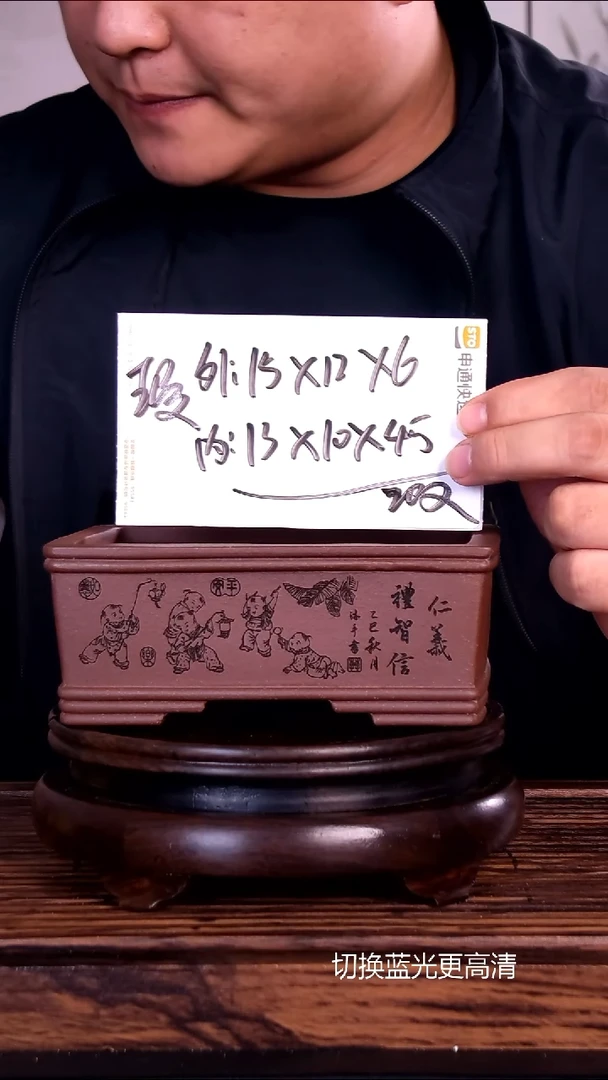 外:15×12×6
内:13×10×4.5
申通快
仁義
禮智信
乙巳秋月
切换蓝光更高清